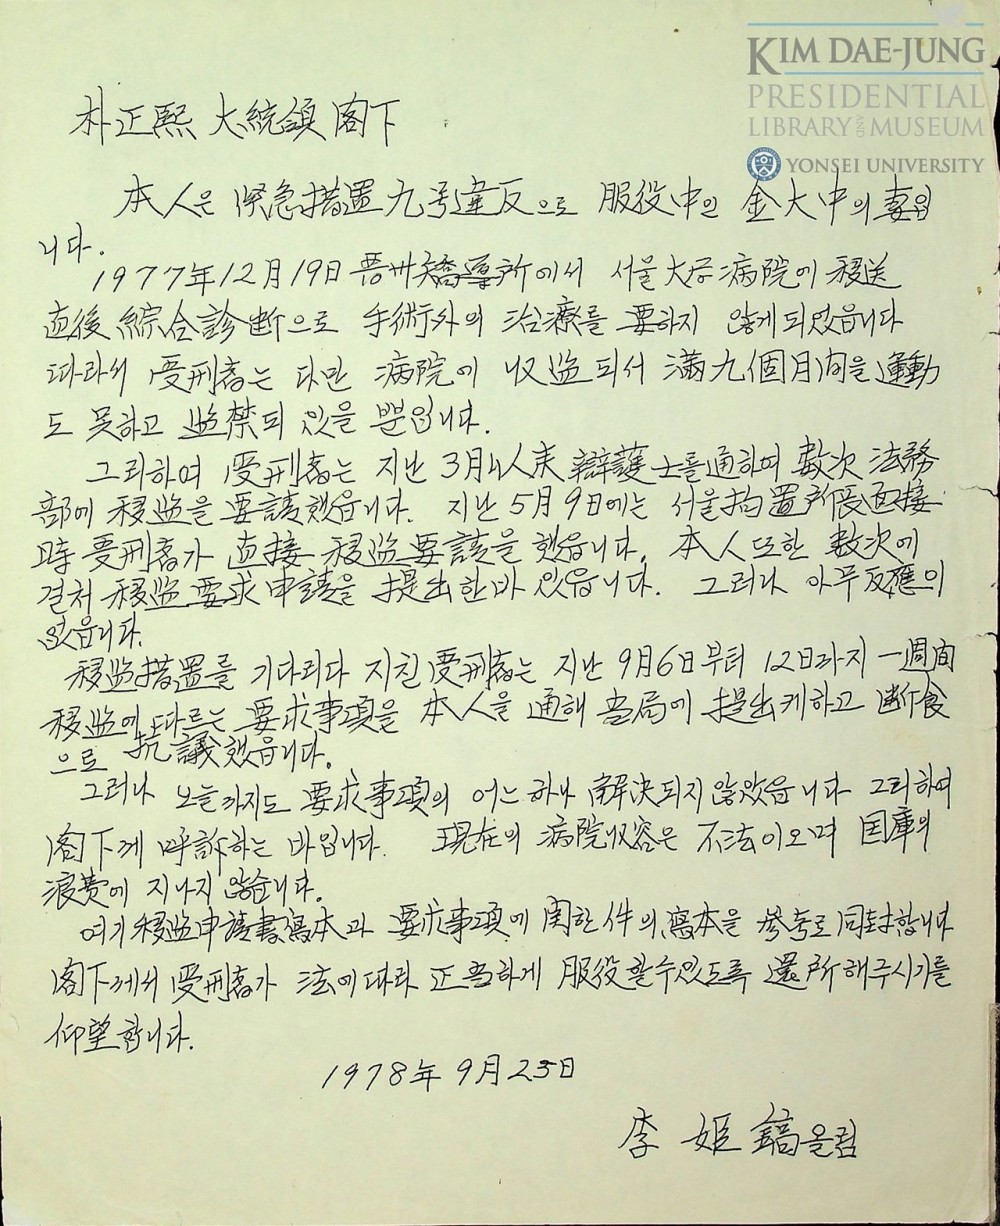 KIM DAE-JUNG
PRESIDENTIAL
LIBRARY AND MUSEUM
YONSEI UNIVERSITY
朴正熙 大統領 閣下
本人은 緊急措置九号違反으로 服役中인 金大中의 妻입
니다.
1977年12月19日 晋州矯導所에서 서울大学病院에 移送
直後 綜合診断으로 手術外의 治療를 要하지 않게 되었읍니다
따라서 受刑者는 다만 病院에 収監되서 満九個月间을 運動
도 못하고 监禁되 있을 뿐입니다.
그리하여 受刑者는 지난 3月 以来 辯護士를 通하여 数次 法務
部에 移监을 要請했읍니다. 지난 5月9日에는 서울拘置所長面接
時 受刑者가 直接 移监要請을 했읍니다. 本人 또한 数次에
걸처 移监要求申請을 提出한바 있읍니다. 그러나 아무 反應이
없읍니다.
移监措置를 기다리다 지친 受刑者는 지난 9月6日부터 12日까지 一週間
移监에 따르는 要求事項을 本人을 通해 当局에 提出케하고 断食
으로 抗議했읍니다.
그러나 오늘까지도 要求事項의 어느 하나 解決되지 않았읍니다 그리하여
閣下께 呼訴하는 바입니다. 現在의 病院収容은 不法이오며 国庫의
浪費에 지나지 않습니다.
여기 移监申請書寫本과 要求事項에 関한 件의 寫本을 参考로 同封합니다
閣下께서 受刑者가 法에 따라 正当하게 服役할수있도록 還所해주시기를
仰望합니다.
1978年 9月 23日
李 姬 鎬 올림